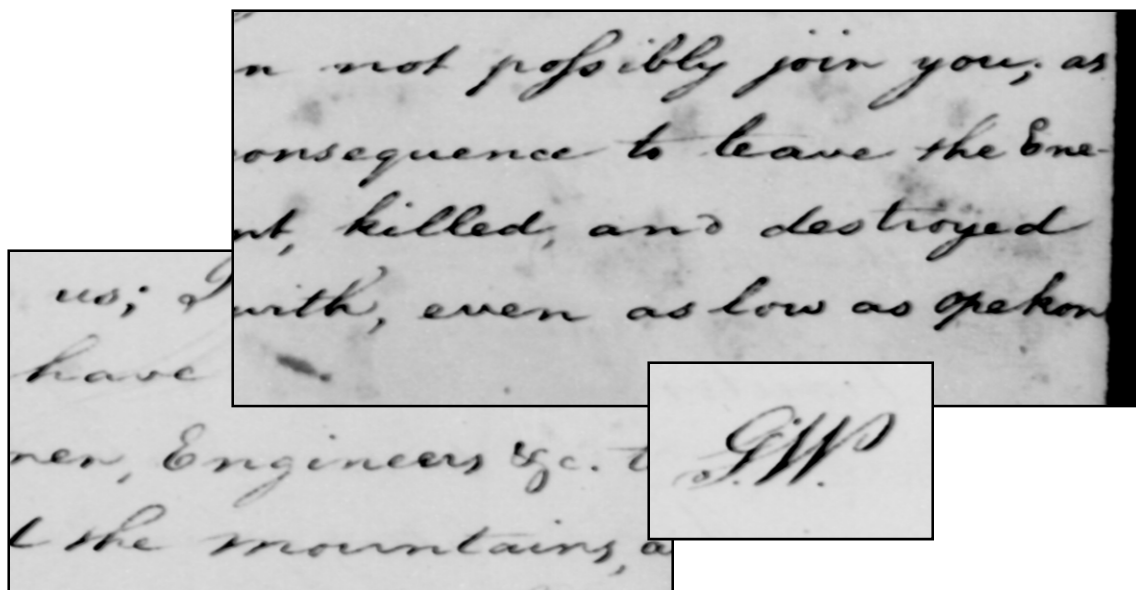 n not possibly join you, as
onsequence to leave the Ene-
nt, killed, and destroyed
with, even as low as Opekon
us; I
have
men, Engineers &c. t
l the mountains, a
G.W.